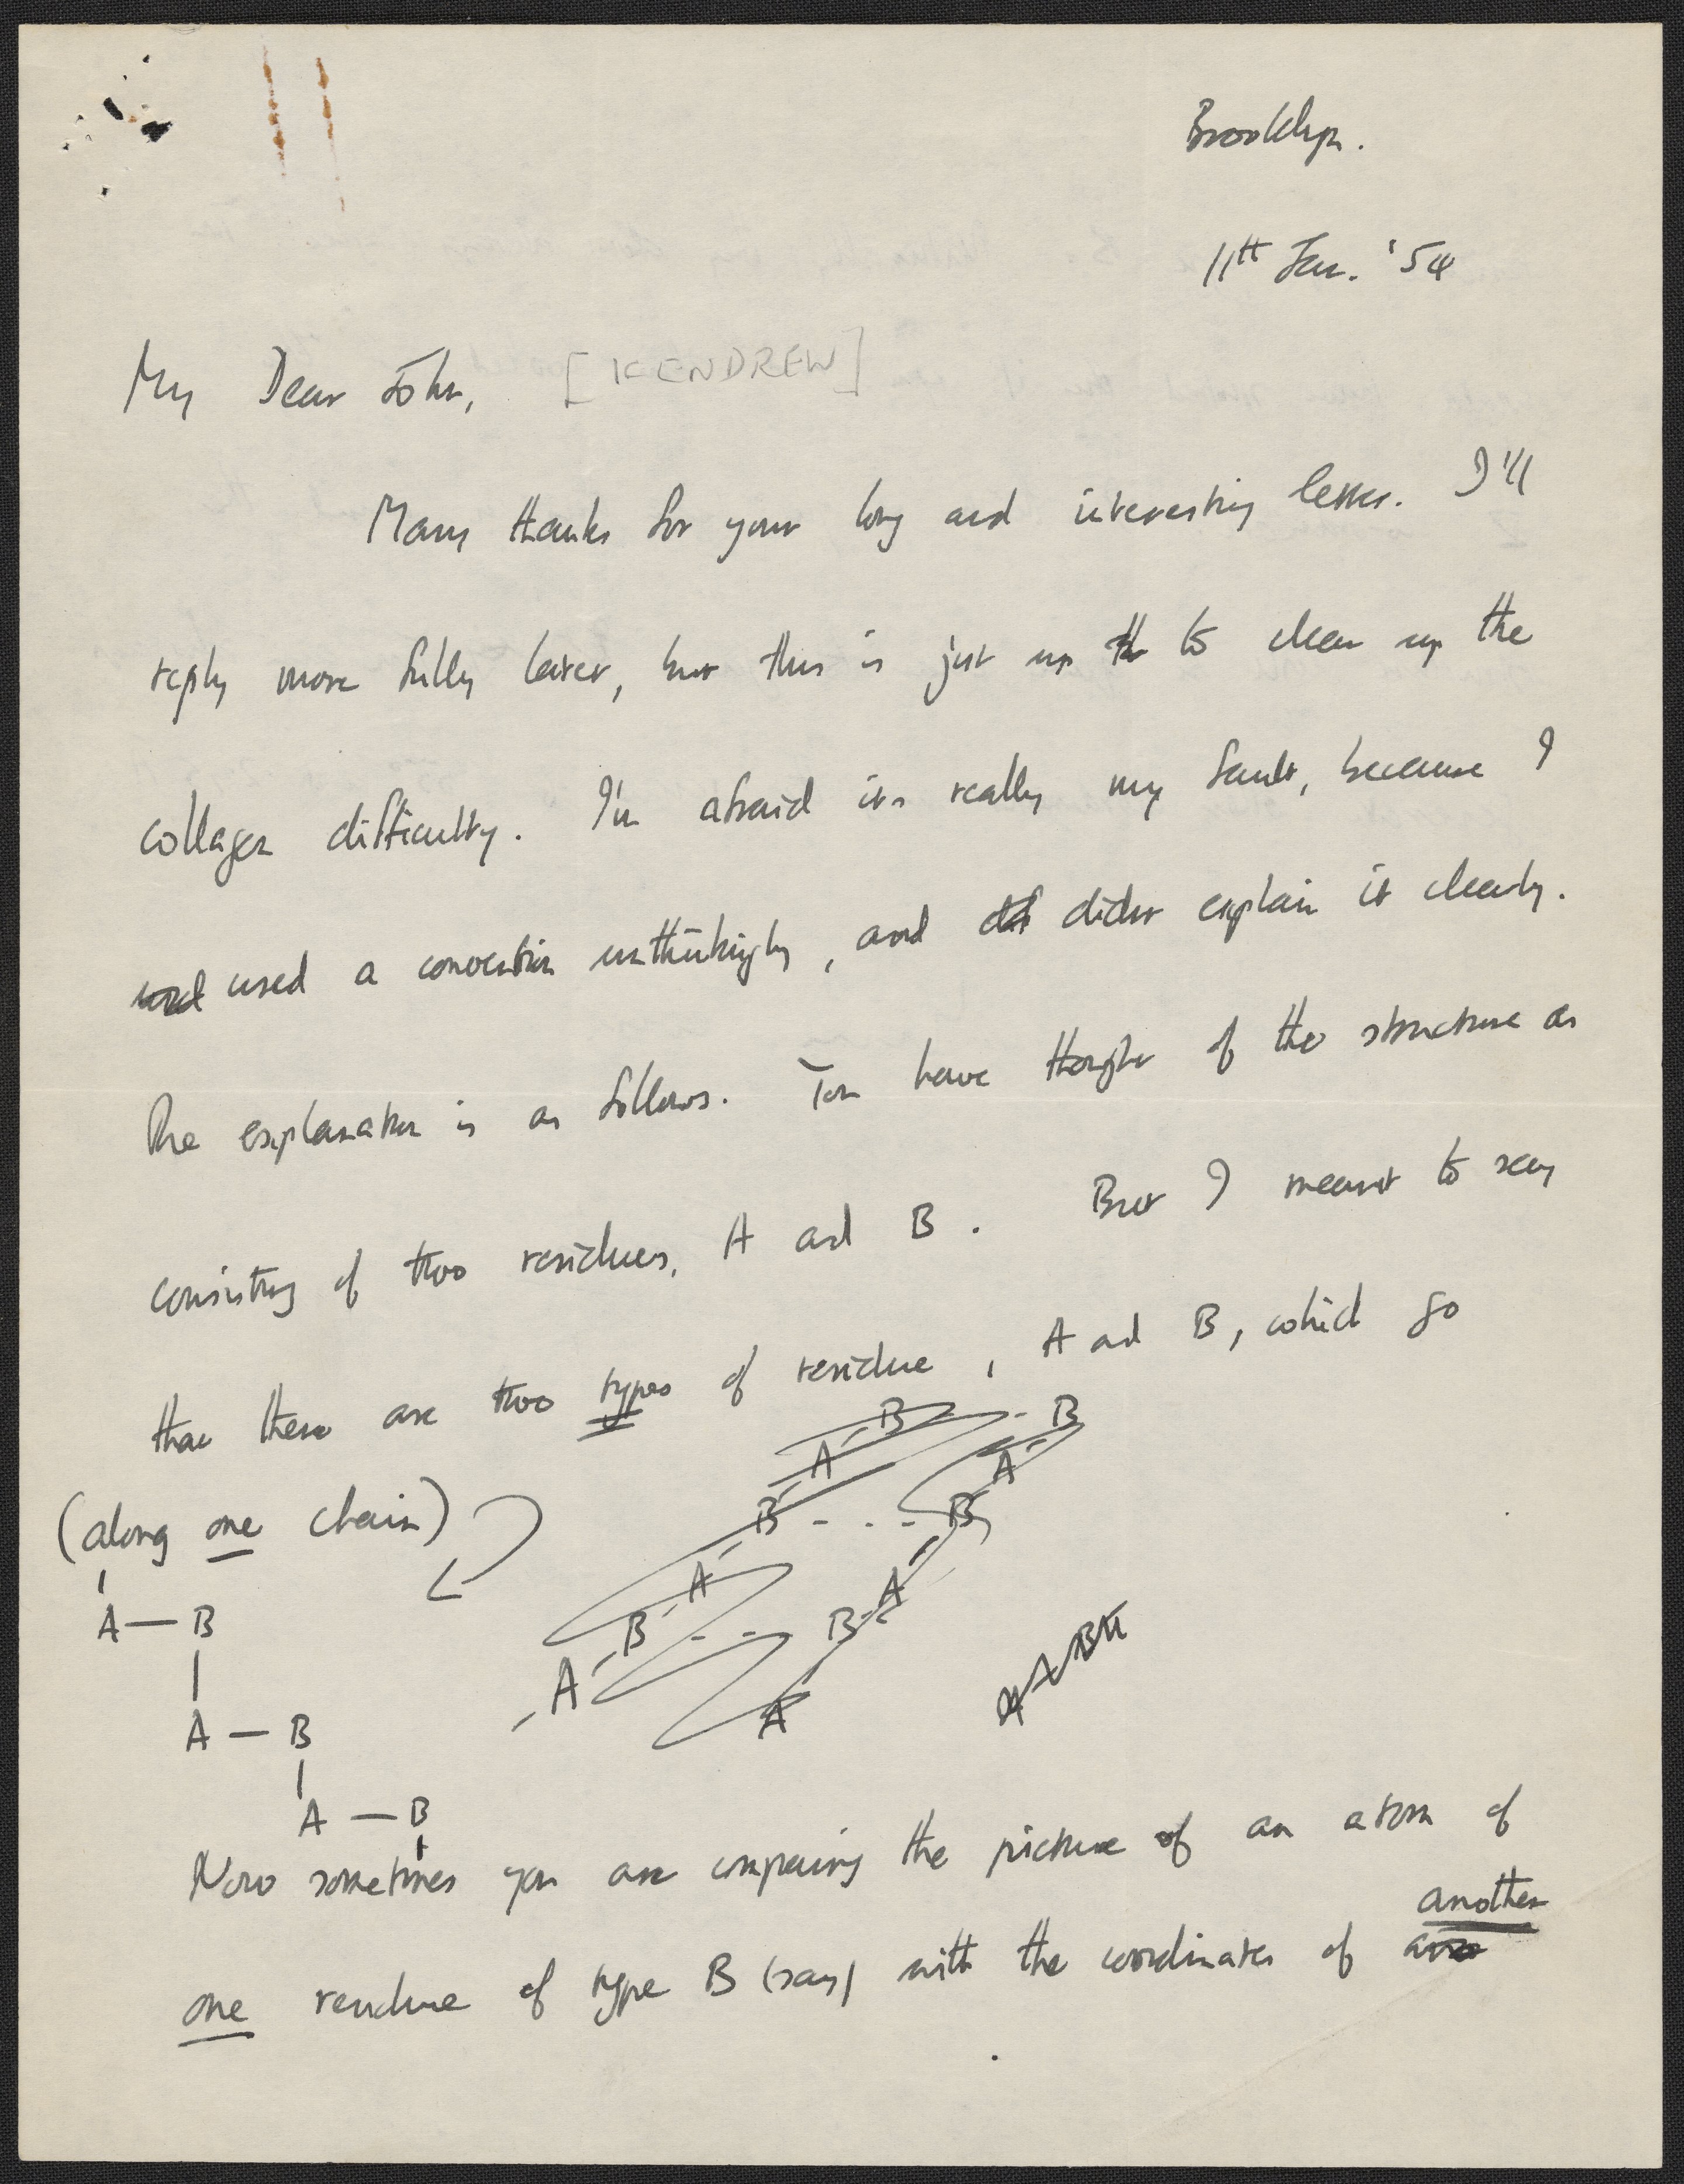 Brooklyn.
11th Jan. '54
My Dear John, [KENDREW]
Many thanks for your long and interesting letter. I'll
reply more fully later, but this is just to clear up the
collagen difficulty. I'm afraid its really my fault, because I
used a convention unthinkingly, and didnt explain it clearly.
The explanation is as follows. You have thought of the structure as
consisting of two residues, A and B. But I meant to say
that there are two types of residue, A and B, which go
(along one chain)
A — B
A — B
A — B
B B
A A
B - . . - B
A A
B - - B
A
A
Now sometimes you are comparing the picture of an atom of
another
one residue of type B (say) with the coordinates of